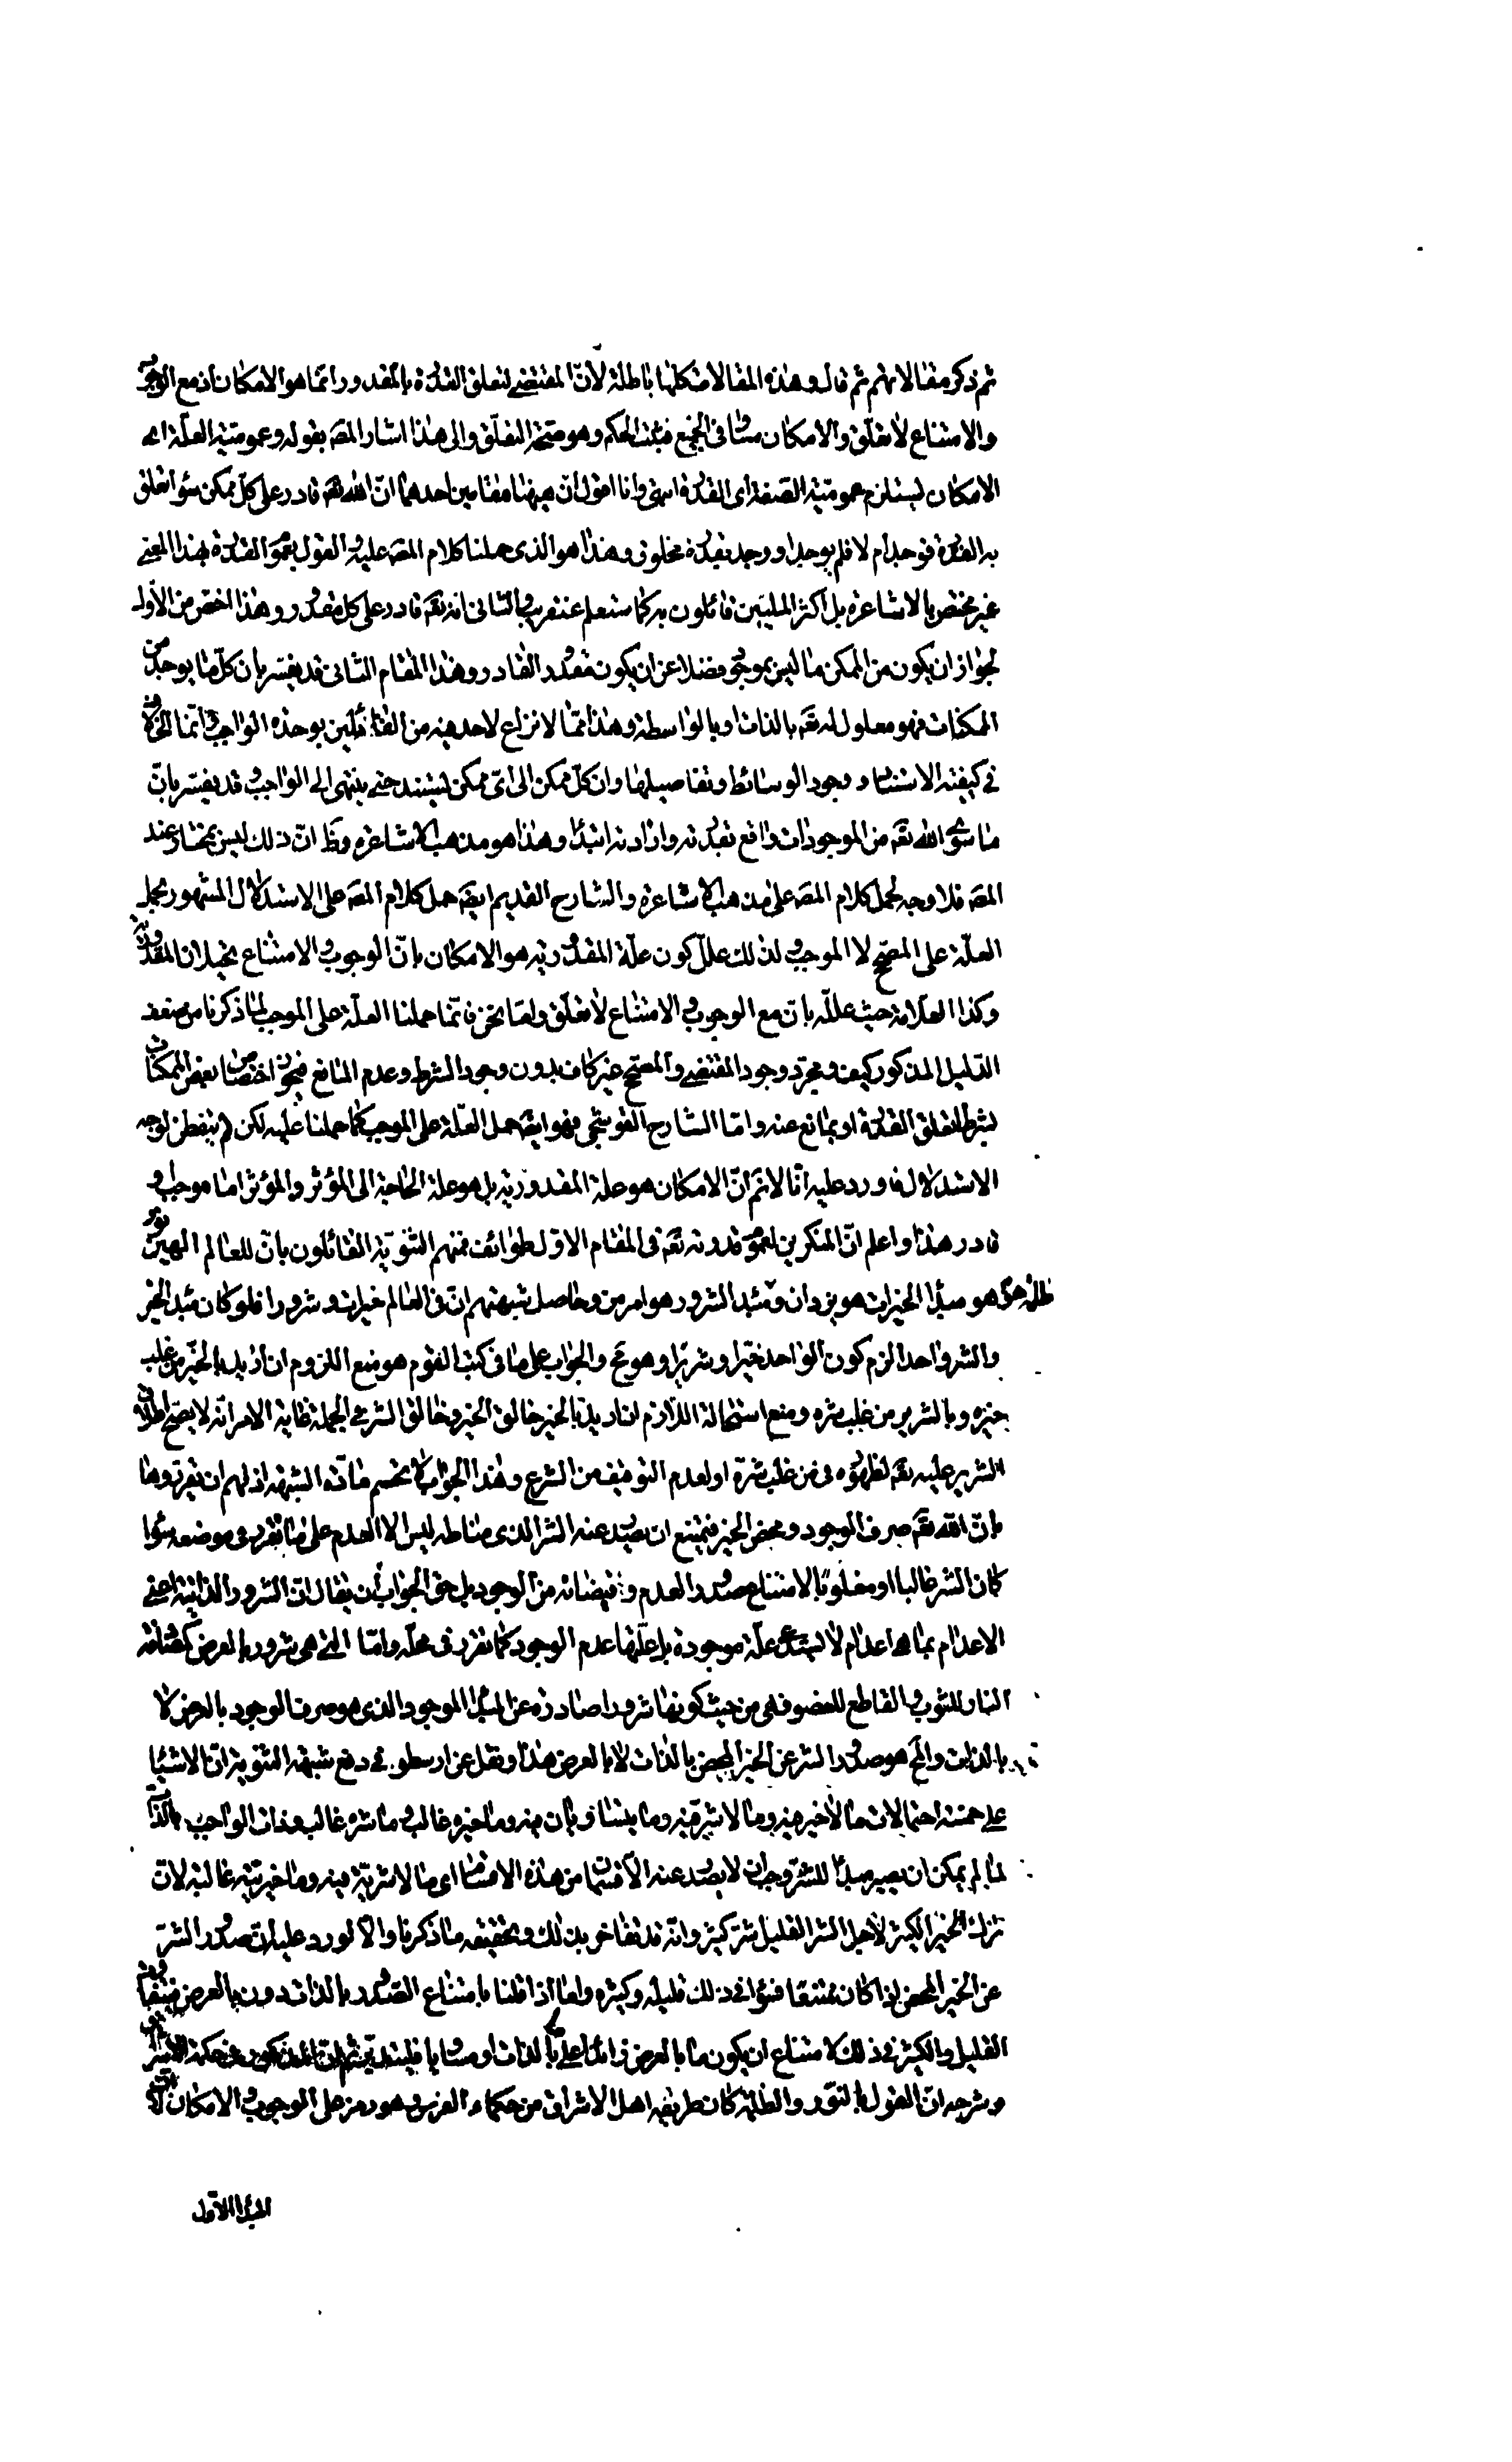 ثم ذكر مقالاتهم ثم قال وهذه المقالات كلها باطلة لأنّ المقتضى لتعلق القدرة بالمقدور انما هو الامكان اذ مع الوجوب
والامتناع لا تعلّق والامكان مساو فى الجميع فيثبت الحكم وهو صحّة التعلّق والى هذا اشار المصّ بقوله وعموميّة العلّة اى
الامكان ليستلزم عموميّة الصفة اى القدرة انتهى وانا اقول انّ ههنا مقامين احدهما انّ الله تعّ قادر على كلّ ممكن سواء تعلق
به القدرة فوجد ام لا فلم يوجد او وجد بقدرة مخلوق وهذا هو الذى حملنا كلام المصّ عليه والقول بعموم القدرة بهذا المعنى
غير مختص بالاشاعرة بل اكثر المليّين قائلون به كما ستعلم عنقريب والثانى انه تعّ قادر على كل مقدور وهذا اخصّ من الاول
لجواز ان يكون من الممكن ما ليس بموجود فضلا عن ان يكون مقدور القادر وهذا المقام الثانى قد يفسّر بان كلّ ما يوجد من
الممكنات فهو معلول له تعّ بالذات او بالواسطة وهذا ممّا لا نزاع لاحد فيه من القائلين بوحدة الواجب وانّما الخلاف
فى كيفيّة الاستناد ووجود الوسائط وتفاصيلها وان كلّ ممكن الى اىّ ممكن ليستند حتى ينتهى الى الواجب وقد يفسّر بانّ
ما سوى الله تعّ من الموجودات واقع بقدرته وارادته ابتداء وهذا هو مذهب الاشاعرة وظّ انّ ذلك ليس بمختار عند
المصّ فلا وجه لحمل كلام المصّ على مذهب الاشاعرة والشارح القديم ايضّ حمل كلام المصّ على الاستدلال المشهور بحمل
العلّة على المصحّح لا الموجب ولذلك علّل كون علّة المقدوريّة هو الامكان بانّ الوجوب والامتناع يحيلان المقدوريّة
وكذا العلّامة حيث علّله بانّ مع الوجوب والامتناع لا تعلّق وامّا نحن فانّما حملنا العلّة على الموجب لما ذكرنا من ضعف
الدّليل المذكور كيف ومجرّد وجود المقتضى والمصحّح غير كاف بدون وجود الشرط وعدم المانع فيجوز اختصاص بعض الممكنات
بشرط لتعلق القدرة او بمانع عنه وامّا الشارح القوشجى فهو ايضّ حمل العلّة على الموجب كما حملنا عليه لكن لم يتفطّن لوجه
الاستدلال فاورد عليه انّا لا نمّ انّ الامكان هو علة المقدوريّة بل هو علة الحاجة الى المؤثر والمؤثر اما موجب او
قادر هذا واعلم انّ المنكرين لعموم قدرته تعّ فى المقام الاول طوائف فمنهم الثنويّة القائلون بانّ للعالم الهين نور
ظلمة هو مبدأ الخيرات هو يزدان ومبدأ الشرور هو اهرمن وحاصل شبهتهم انّ فى العالم خيرات وشرورا فلو كان مبدأ الخير
والشر واحدا لزم كون الواحد خيّرا وشرّيرا وهو مح والجواب على ما فى كتب القوم هو منع اللزوم ان اريد بالخيّر من غلب
خيره وبالشرير من غلب شره ومنع استحالة اللّازم ان اريد بالخيّر خالق الخير وخالق الشر فى الجملة غاية الامر انّه لا يصحّ اطلاق
الشرير عليه تعّ لظهوره فى من غلب شرّه او لعدم التوقيف من الشرع وهذا الجواب لا يحسم مادّة الشبهة اذ لهم ان يقرّروها
بانّ الله تعّ صرف الوجود ومحض الخير فيمتنع ان يصدر عنه الشر الذى مناطه ليس الا العدم على ما تقرر فى موضعه سواء
كان الشر غالبا او مغلوبا لامتناع صدور العدم وفيضانه من الوجود بل حق الجواب أن يقال انّ الشرور الذاتية اعنى
الاعدام بما هى اعدام لا تستدعى علّة موجودة بل علّتها عدم الوجود كما تقرر فى محلّه وامّا التى هى شرور بالعرض كمماسّة
النار للثوب والقاطع للعضو فهى من حيث كونها شرورا صادرة عن المبدأ الموجود الذى هو صرف الوجود بالعرض لا
بالذات والمح هو صدور الشر عن الخير المحض بالذات لا بالعرض هذا ونقل عن ارسطو فى دفع شبهة الثنوية انّ الاشياء
على خمسة احتمالات ما لا خير فيه وما لا شرّ فيه وما يتساويان فيه وما خيره غالب وما شره غالب وذات الواجب بالذات
لما لم يمكن ان يصير مبدأ للشرّ وجب ان لا يصدر عنه الّا قسمان من هذه الاقسام اى ما لا شرّيّة فيه وما خيريّته غالبة لانّ
ترك الخير الكثير لأجل الشر القليل شرّ كثير وانّه قد تفاخر بذلك وتحقيقه ما ذكرنا والّا لورد عليه انّ صدور الشرّ
عن الخير المحض اذا كان ممتنعا فسواء فى ذلك قليله وكثيره وامّا اذا قلنا بامتناع الصدور بالذات دون بالعرض فيتفاوت
القليل والكثير فى ذلك لامتناع ان يكون ما بالعرض زائدا على ما بالذات او مساويا فليتدبّر ثم انّ المذكور فى حكمة الاشراق
وشرحه انّ القول بالنّور والظلمة كان طريقة اهل الاشراق من حكماء الفرس وهو رمز على الوجوب والامكان لا انّ
المبدأ الاول